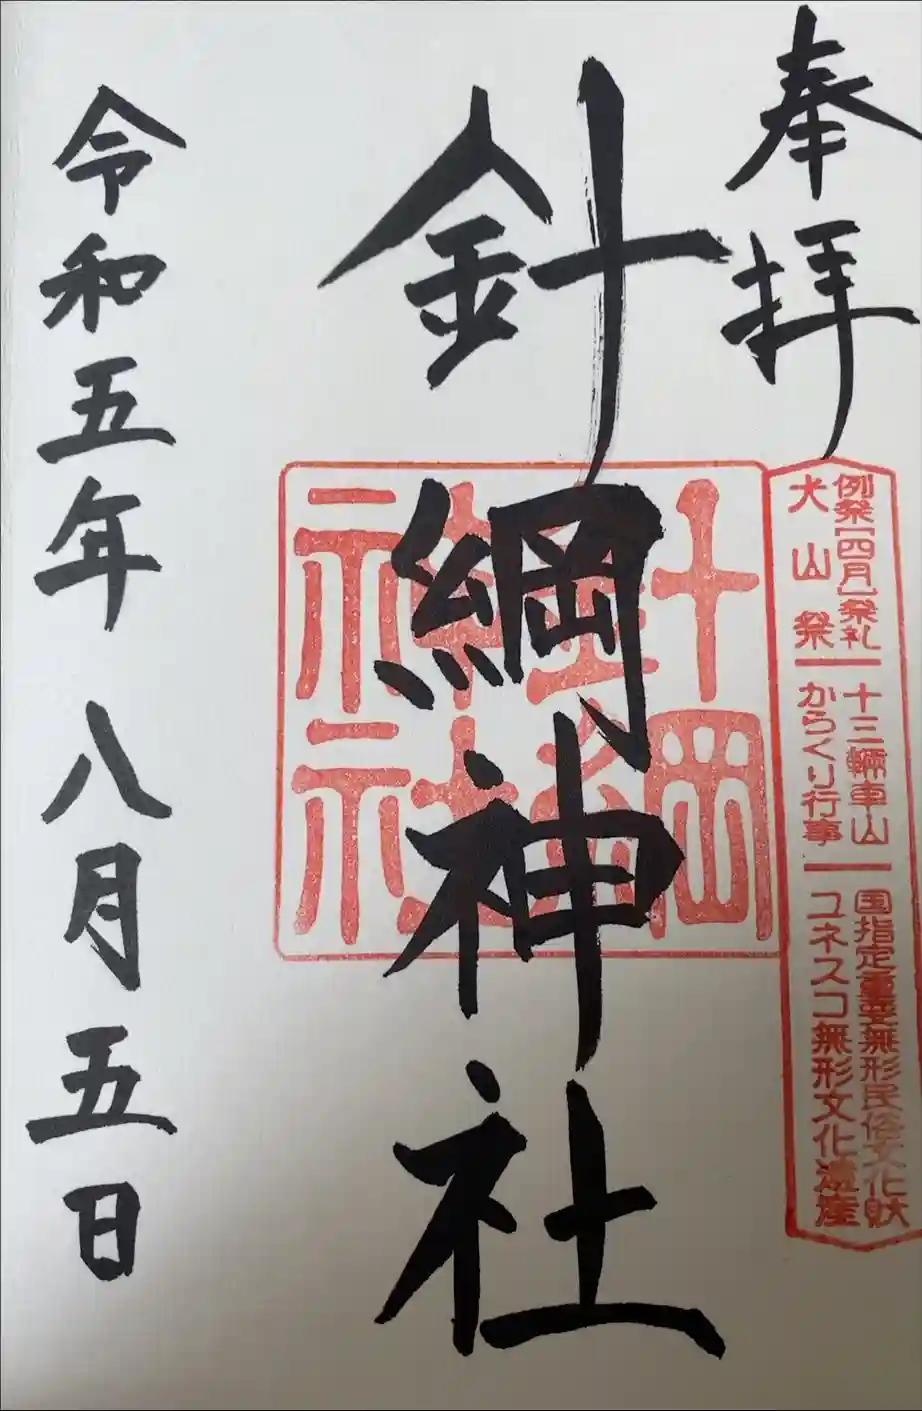 奉拝
例祭[四月]祭礼 十三輛車山 国指定重要無形民俗文化財
犬山祭 からくり行事 ユネスコ無形文化遺産
針綱神社
針綱神社
令和五年 八月五日